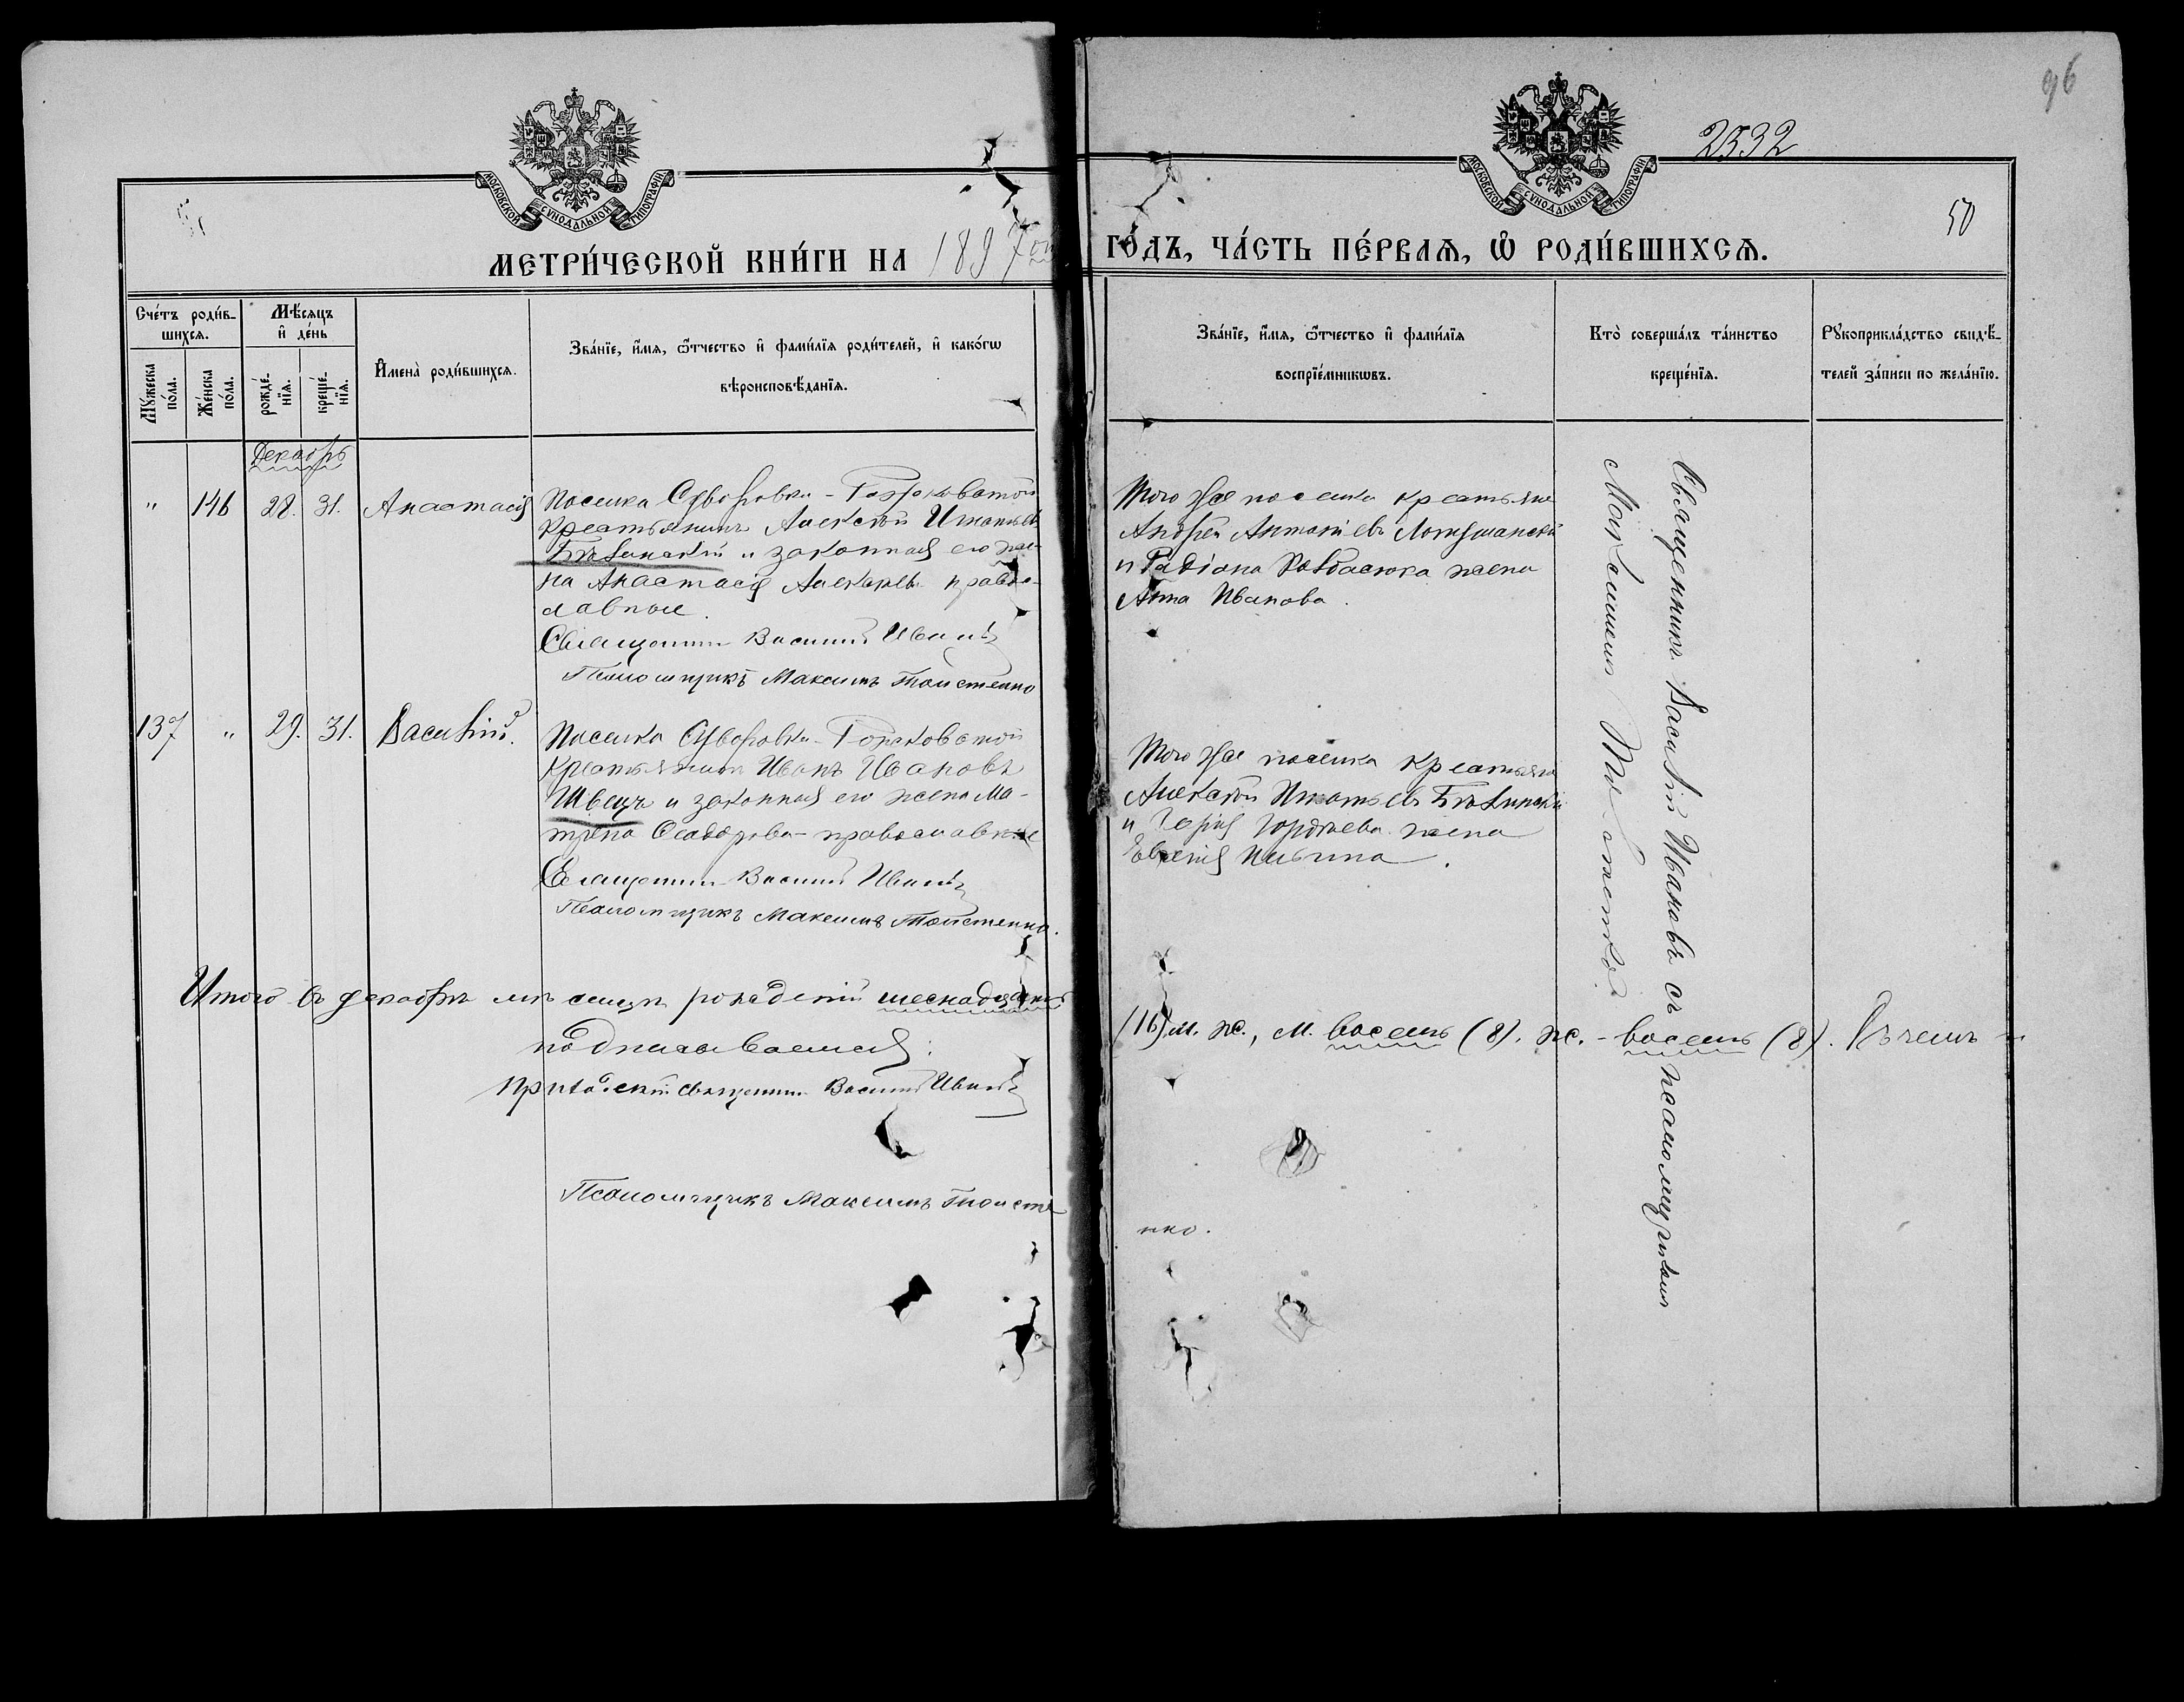 96
2532
50
МОСКОВСКОЙ СѴНОДАЛЬНОЙ ТИПОГРАФІИ
МОСКОВСКОЙ СѴНОДАЛЬНОЙ ТИПОГРАФІИ
МЕТРИ́ЧЕСКОЙ КНИ́ГИ НА 1897
ГО́ДЪ, ЧА́СТЬ ПЕ́РВАЯ, Ѡ РОДИ́ВШИХСЯ.
Сче́тъ роди́в-
шихся.
Му́жеска по́ла.
Же́нска по́ла.
Мѣ́сяцъ
и҆ де́нь
рожде́-
нїя.
креще́-
нїя.
И҆мена̀ роди́вшихся.
Зва́нїе, и҆́мя, ѻ҆́тчество и҆ фами́лїя роди́телей, и҆ како́гѡ
вѣроисповѣ́данїя.
Зва́нїе, и҆́мя, ѻ҆́тчество и҆ фами́лїя
воспрїе́мникѡвъ.
Кто̀ соверша́лъ та́инство
креще́нїя.
Рꙋкоприкла́дство свидѣ́-
телей за́писи по жела́нїю.
Декабрь
" 146 28. 31. Анастасія
Поселка Суворовки -
крестьянинъ Алексѣй Игнатьевъ
и законная его же-
на Анастасія правос-
лавные.
Священникъ Василій Ивановъ
Псаломщикъ Максимъ Толстенко
Того же поселка крестьяне
Андрей Антоніевъ
и жена
Анна Иванова.
Священникъ Василій Ивановъ съ псаломщикомъ
Максимомъ Толстенко.
137 " 29. 31. Василій.
Поселка Суворовки -
крестьянинъ Иванъ Ивановъ
Швецъ и законная его жена Ма-
трона Ѳеодорова - православные
Священникъ Василій Ивановъ
Псаломщикъ Максимъ Толстенко.
Того же поселка крестьяне
Алексѣй Игнатьевъ
и Гордѣева жена
Итого въ декабрѣ мѣсяцѣ рожденій шеснадцать
(16) м. ж., м. восемь (8). ж. - восемь (8). Въ чемъ и
подписываемся:
Приходскій священникъ Василій Ивановъ
Псаломщикъ Максимъ Толсте
нко.